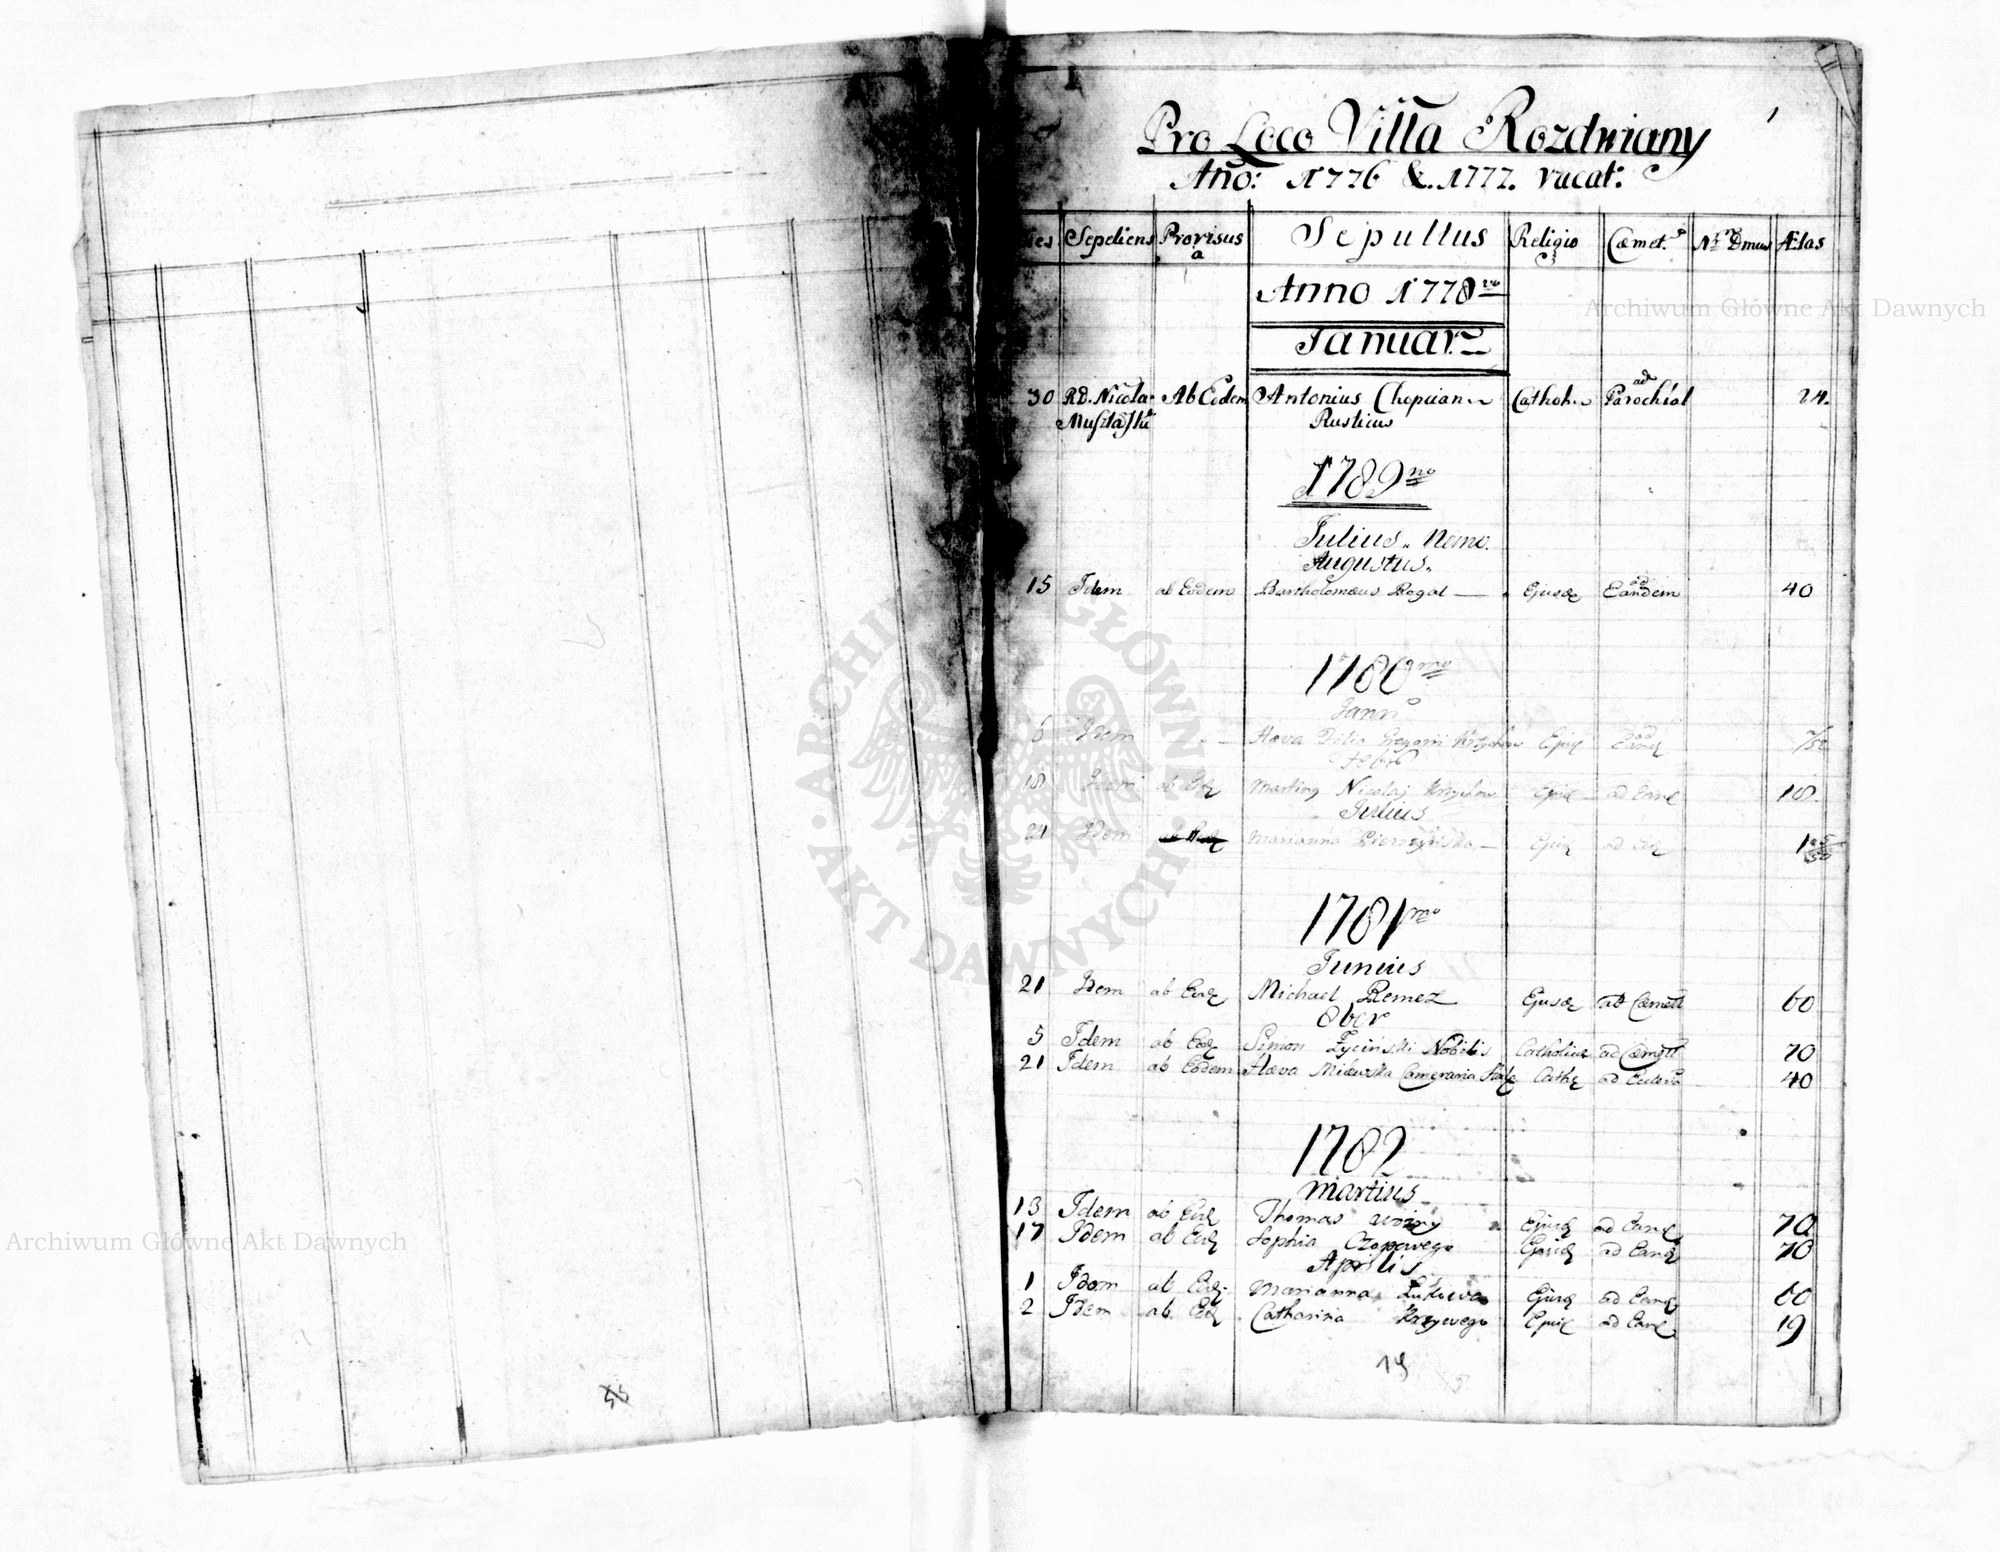 Pro Loco Villa Rozdwiany
1
Año: 1776 &. 1777. vacat:
Dies Sepeliens Provisus à Sepultus Religio Cæmet. Nr Dmus Ætas
Anno 1778vo
Januar.
30 RD. Nicola- Ab Eodem Antonius Catholi. ad Parochial 24.
Rusticus
1789no
Julius. Nemo.
Augustus.
15 Idem ab Eodem Bartholomæus Rogal Ejusd ad Eandem 40
1780mo
Janri
6 Idem Hæva Filia Gregorii Ejusd ad Eand
Febr
18 Idem ab Eod Martinus Nicolaj Ejusd ad Eand 18.
Julius
24 Idem ab Eod Marianna Ejusd ad Ead
1781mo
Junius
21 Idem ab Eod Michael Remez Ejusd ad Cæmett 60
8ber
5 Idem ab Eod Simon Zyciński Nobilis Catholicus ad Cæmett 70
21 Idem ab Eodem Hæva Cathc ad 40
1782
Martius
13 Idem ab Eod Thomas Ejusd ad Eand 70
17 Idem ab Eod Sophia Czopowego Ejusd ad Eand 70
Aprilis
1 Idem ab Eod Marianna Ejusd ad Eand 60
2 Idem ab Eod Catharina Krzywego Ejusd ad Eand 19
19
Archiwum Główne Akt Dawnych
Archiwum Główne Akt Dawnych
ARCHIWUM GŁÓWNE
AKT DAWNYCH